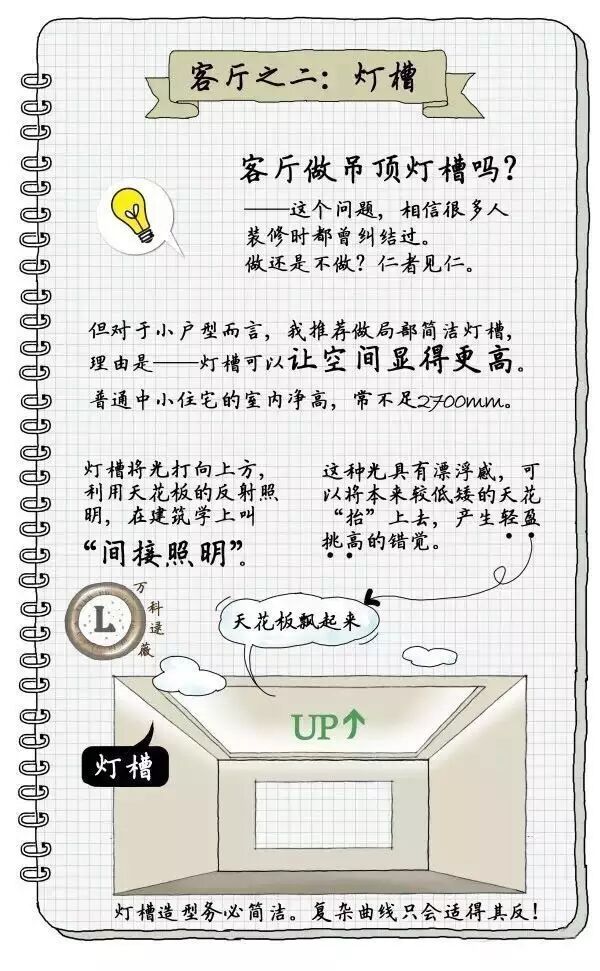 客厅之二：灯槽
客厅做吊顶灯槽吗？
——这个问题，相信很多人
装修时都曾纠结过。
做还是不做？仁者见仁。
但对于小户型而言，我推荐做局部简洁灯槽，
理由是——灯槽可以让空间显得更高。
普通中小住宅的室内净高，常不足2700mm。
灯槽将光打向上方，
利用天花板的反射照
明，在建筑学上叫
“间接照明”。
这种光具有漂浮感，可
以将本来较低矮的天花
“抬”上去，产生轻盈
挑高的错觉。
L
万科逯薇
天花板飘起来
UP↑
灯槽
灯槽造型务必简洁。复杂曲线只会适得其反！